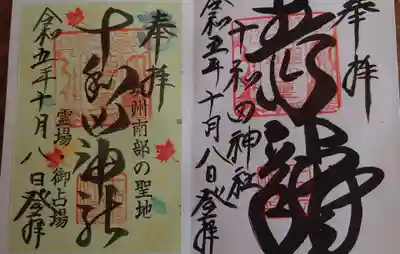 奉拝
十和田神社
州南部の聖地
霊場・御占場
令和五年十月八日登拝
奉拝
十和田神社
令和五年十月八日登拝